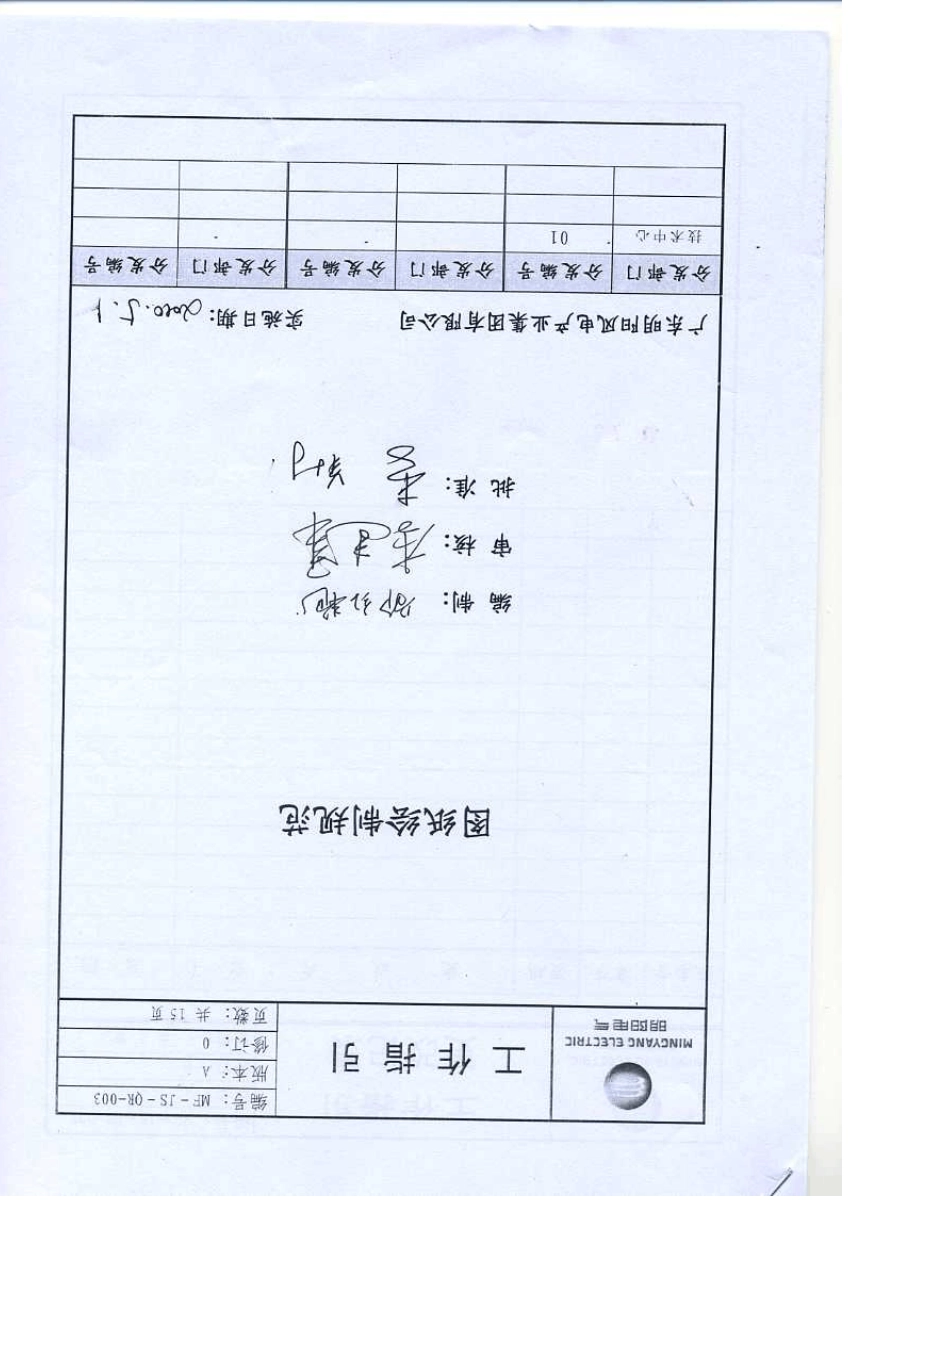 MINGYANG ELECTRIC
明阳电气
工作指引
编号: MF-JS-QR-003
版本: A
修订: 0
页数: 共 15 页
图纸绘制规范
编 制:
审 核:
批 准:
广东明阳风电产业集团有限公司 实施日期: 2010.5.1
分发部门 分发编号 分发部门 分发编号 分发部门 分发编号
技术中心 01